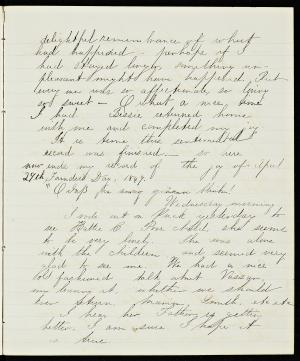 delightful remembrance of what
had happened - perhaps if I
had stayed longer something un-
pleasant might have happened, But
every one was so affectionate so loving
so sweet - O what a nice time
I had. Bessie returned home
with me and completed my joy
It is time this sentimental
record was finished - so here
now ends my record of the joy of April
27th, Founders Day, 1869.
"O
Wednesday morning
I rode out on Black yesterday to
see Hattie C. she seems
to be very lonely. She was alone
with the children, and seemed very
glad to see me. We had a nice
old fashioned talk about Vassar,
my leaving it, whether we should
ever etc etc
I hear her Father is getting
better. I am sure I hope it
is true.